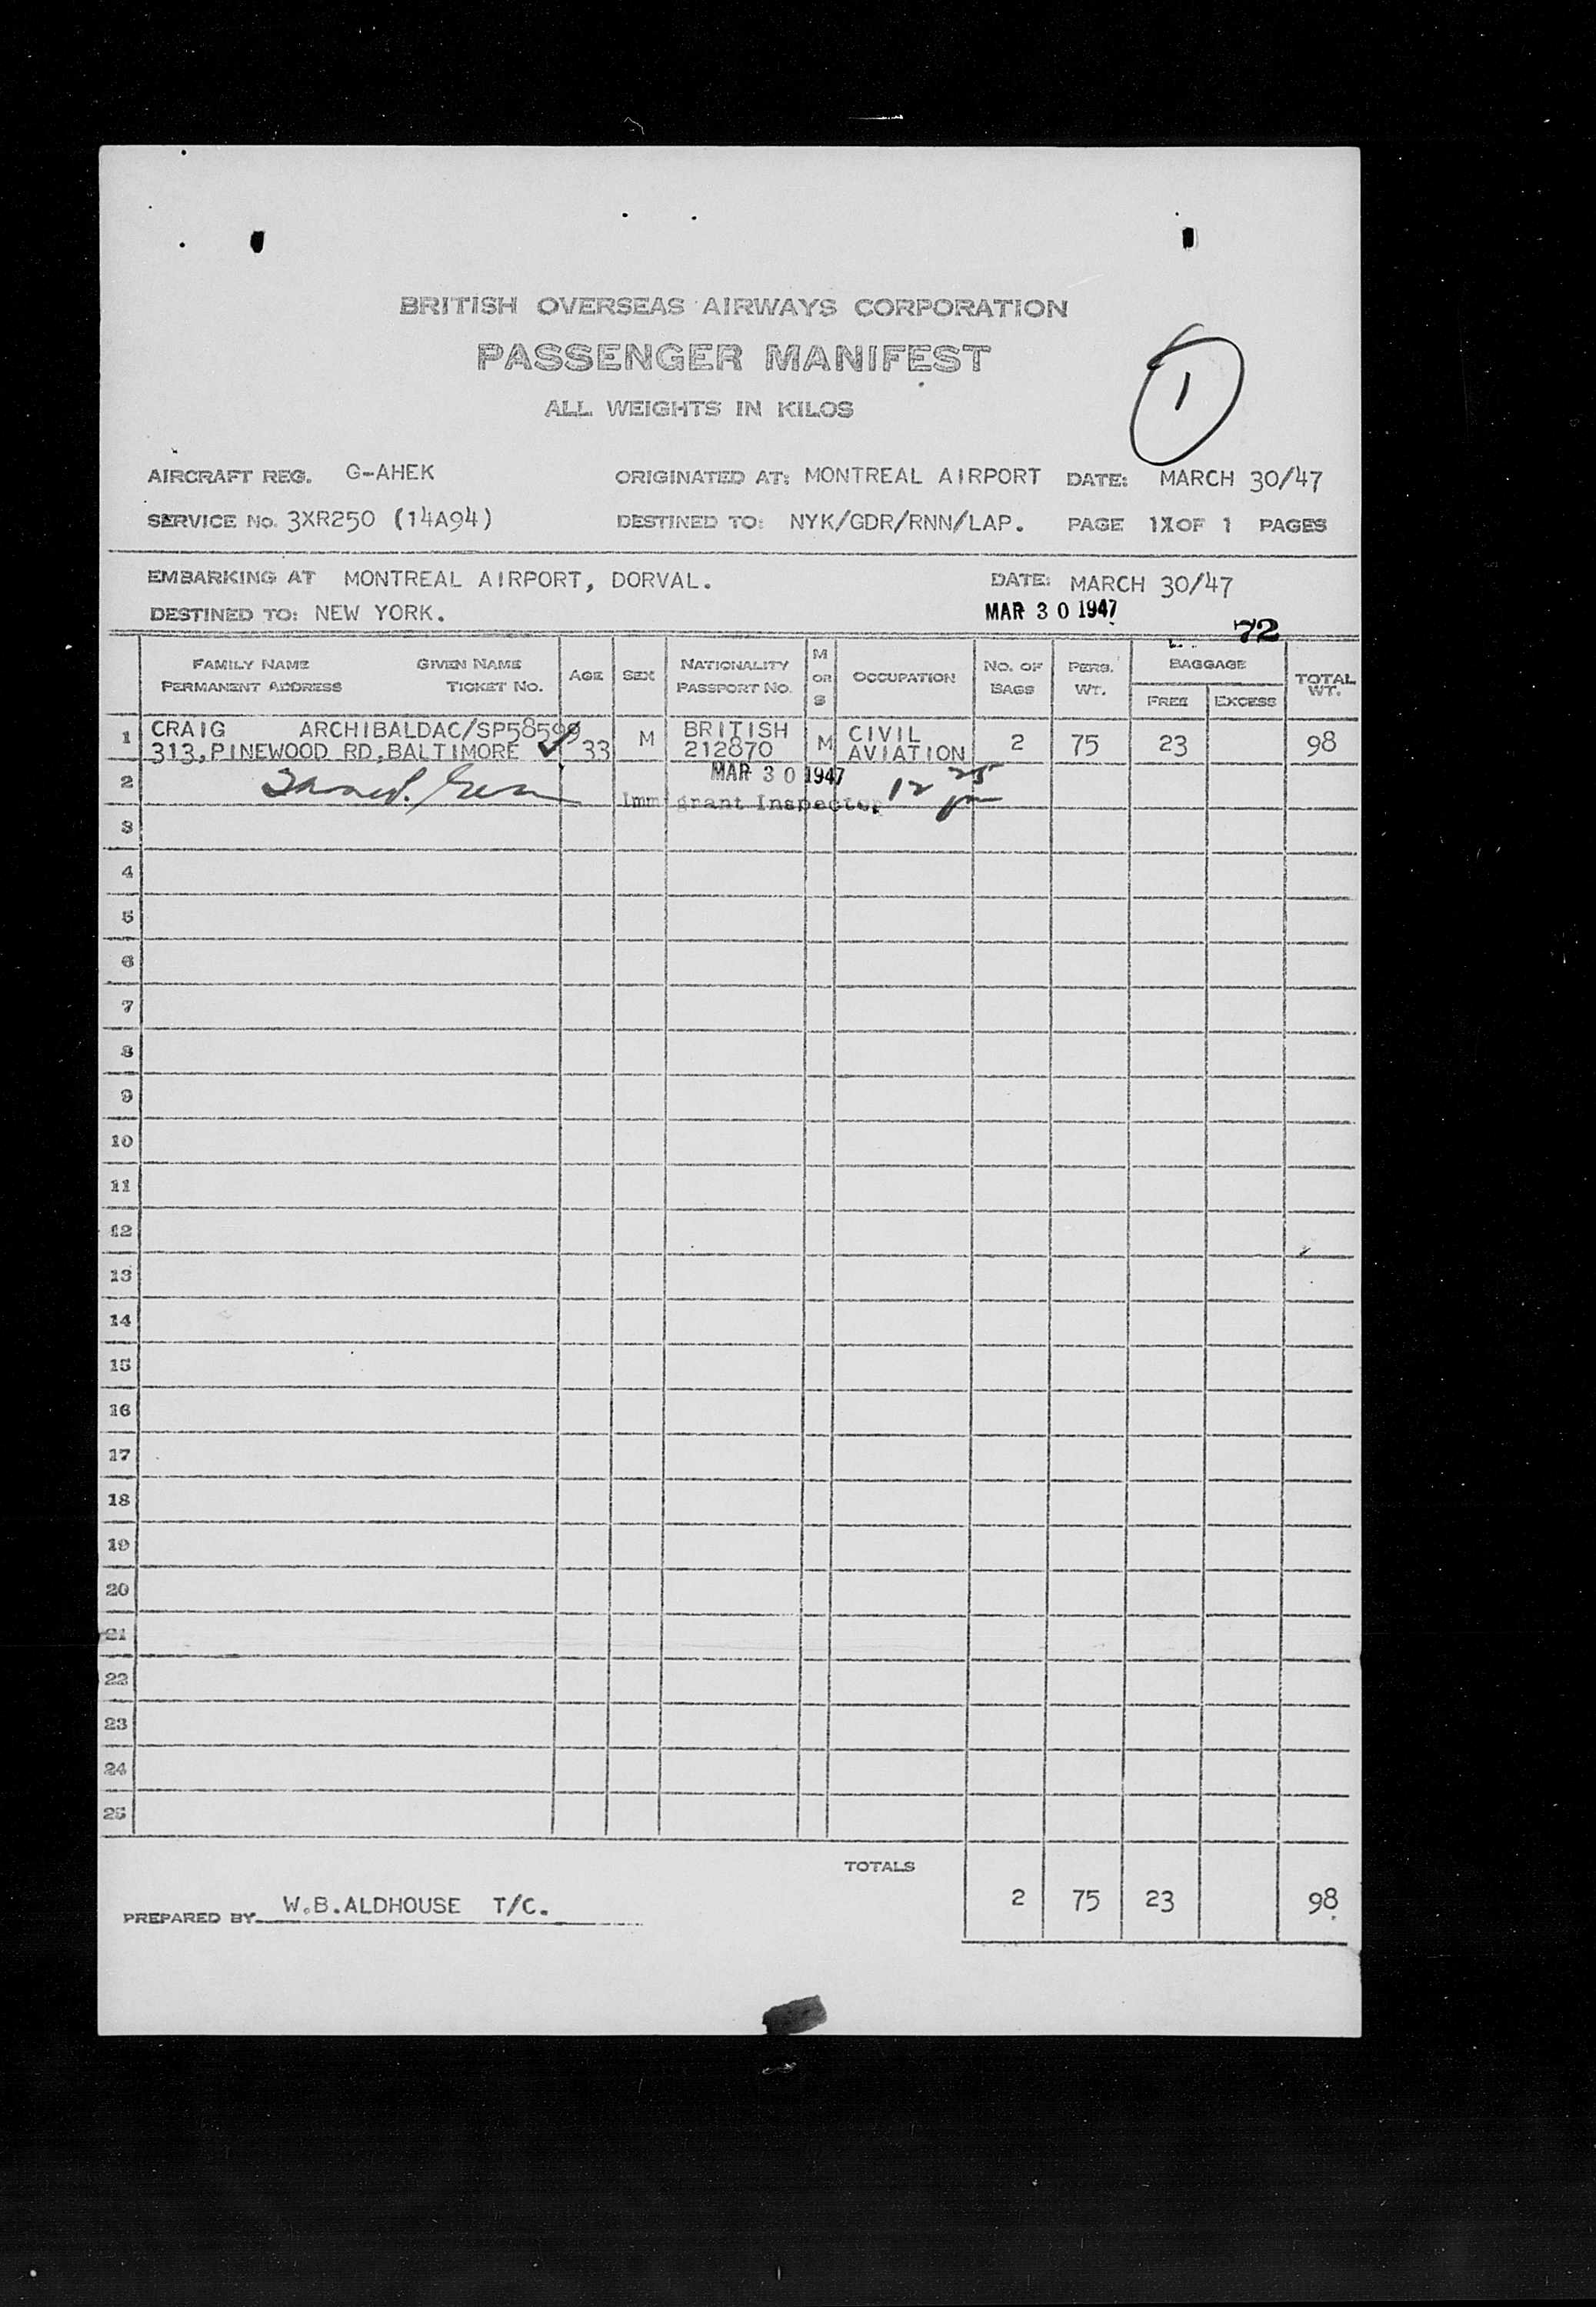 BRITISH OVERSEAS AIRWAYS CORPORATION
PASSENGER MANIFEST
ALL WEIGHTS IN KILOS
1
AIRCRAFT REG. G-AHEK ORIGINATED AT: MONTREAL AIRPORT DATE: MARCH 30/47
SERVICE No. 3XR250 (14A94) DESTINED TO: NYK/GDR/RNN/LAP. PAGE 1X OF 1 PAGES
EMBARKING AT MONTREAL AIRPORT, DORVAL. DATE: MARCH 30/47
DESTINED TO: NEW YORK. MAR 30 1947
72
FAMILY NAME GIVEN NAME AGE SEX NATIONALITY M OR S OCCUPATION NO. OF BAGS PERS. WT. BAGGAGE TOTAL WT.
PERMANENT ADDRESS TICKET NO. PASSPORT NO. FREE EXCESS
1 CRAIG ARCHIBALD AC/SP58599 33 M BRITISH M CIVIL 2 75 23 98
313, PINEWOOD RD, BALTIMORE 212870 AVIATION
MAR 30 1947
2 Immigrant Inspector 12 25 pm
3
4
5
6
7
8
9
10
11
12
13
14
15
16
17
18
19
20
21
22
23
24
25
TOTALS 2 75 23 98
PREPARED BY W.B.ALDHOUSE T/C.